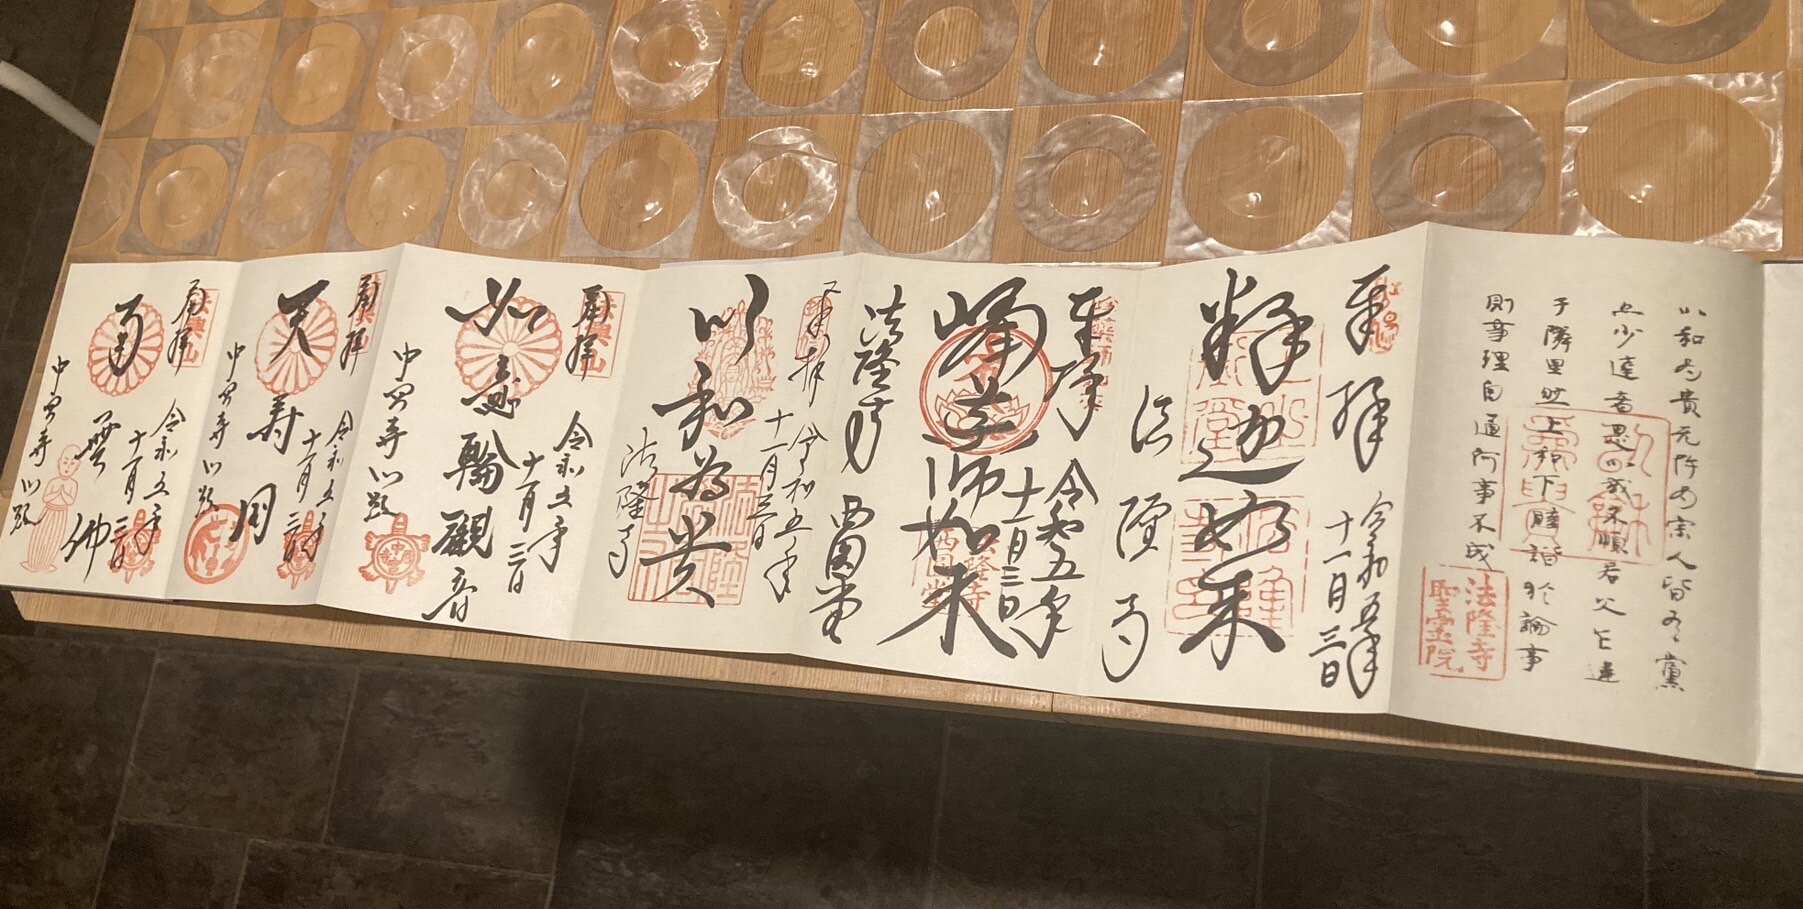 以和為貴無忤為宗人皆有黨
亦少達者是以或不順君父乍違
于隣里然上和下睦諧於論事
則事理自通何事不成
法隆寺
聖霊院
奉拝
令和五年
十一月三日
釋迦如来
法隆寺
奉拝
令和五年
十一月三日
峰薬師如来
法隆寺
西円堂
奉拝
令和五年
十一月三日
以和為貴
法隆寺
法興山
奉拝
令和五年
十一月三日
如意輪觀音
中宮寺門跡
中宮寺
法興山
奉拝
令和五年
十一月三日
天寿国
中宮寺門跡
法興山
奉拝
令和五年
十一月三日
南無佛
中宮寺門跡